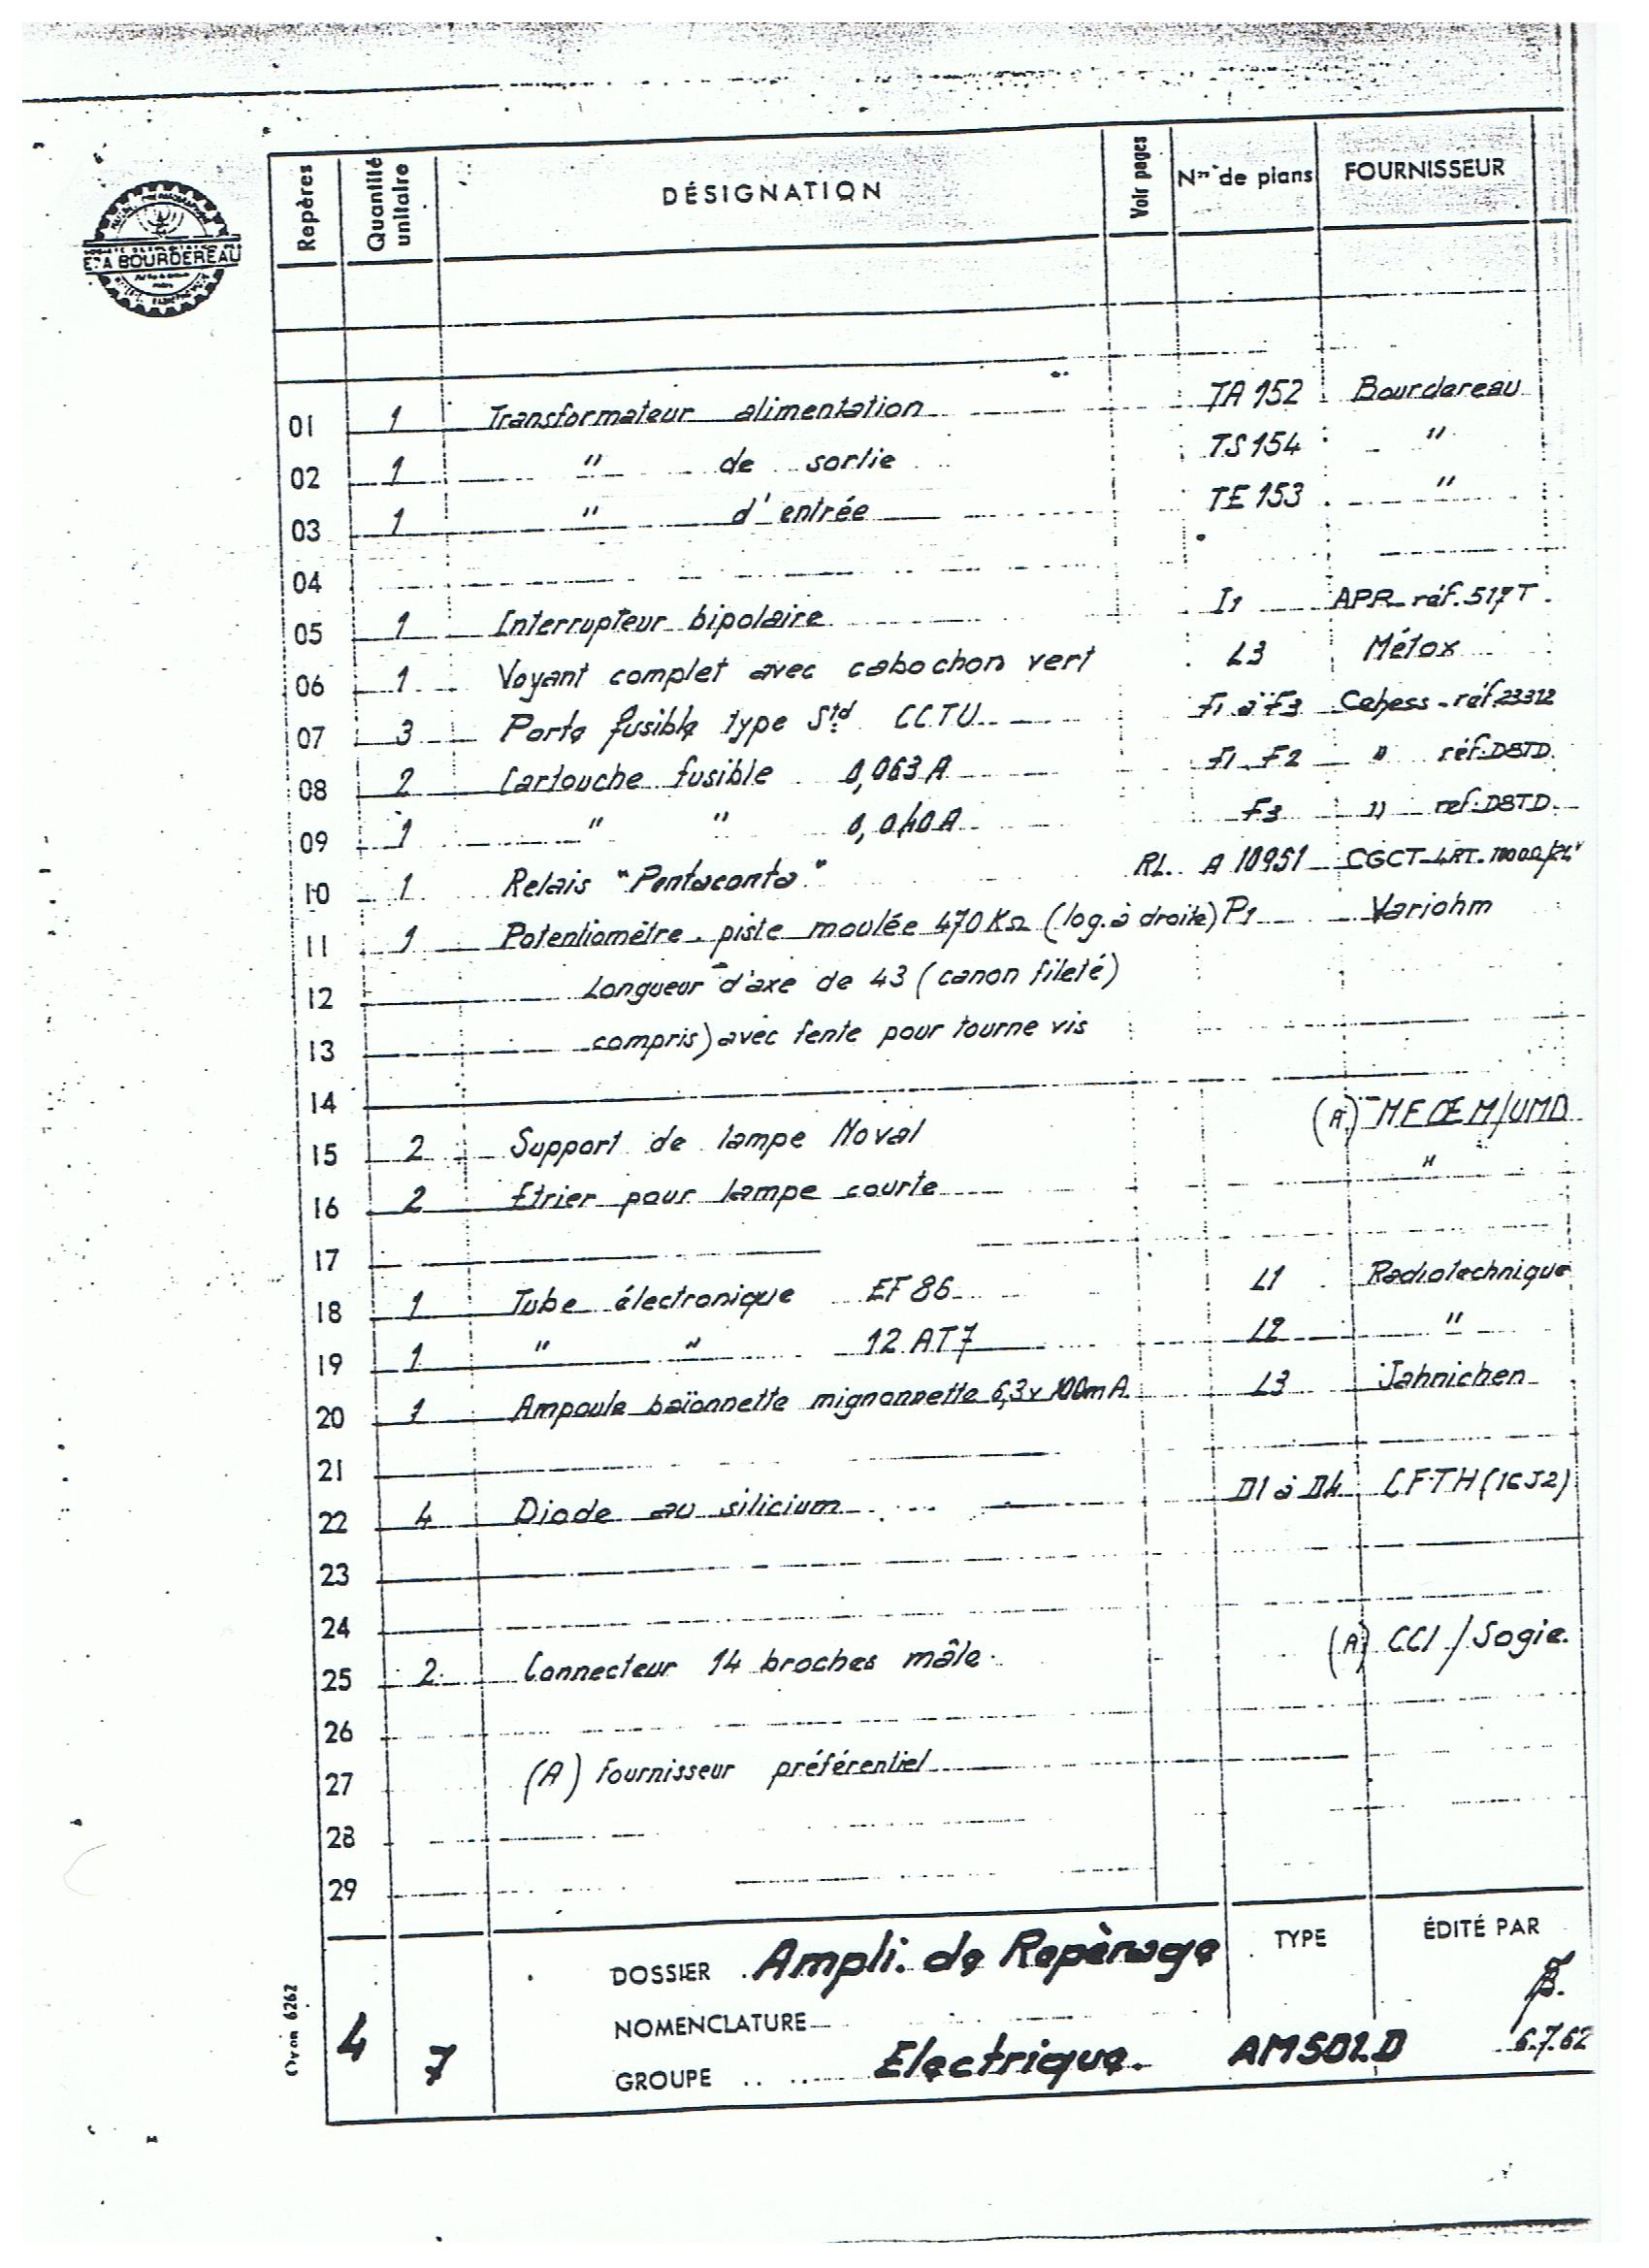 Repères Quantité unitaire DÉSIGNATION Voir pages Nos de plans FOURNISSEUR
E. A BOURDEREAU
01 1 Transformateur alimentation TA 152 Bourdereau
02 1 " de sortie TS 154 "
03 1 " d'entrée TE 153 "
04
05 1 Interrupteur bipolaire I1 APR réf. 517 T
06 1 Voyant complet avec cabochon vert L3 Métox
07 3 Porte fusible type Std CCTU F1 à F3 Cehess - réf 23312
08 2 Cartouche fusible 0,063 A F1 F2 " réf. D8TD.
09 1 " " 0,040 A F3 " ref. D8TD.
10 1 Relais "Pentaconta" RL. A 10951 CGCT
11 1 Potentiomètre piste moulée 470 KΩ (log. à droite) P1 Variohm
12 Longueur d'axe de 43 (canon fileté)
13 compris) avec fente pour tourne vis
14
15 2 Support de lampe Noval (A) MFOEM/UMD
16 2 Etrier pour lampe courte "
17
18 1 Tube électronique EF 86 L1 Radiotechnique
19 1 " " 12 AT7 L2 "
20 1 Ampoule baïonnette mignonnette 6,3v 100mA L3 Jahnichen
21
22 4 Diode au silicium D1 à D4 CFTH (16J2)
23
24
25 2 Connecteur 14 broches mâle (A) CCI / Sogie.
26
27 (A) Fournisseur préférentiel
28
29
4 7 DOSSIER Ampli. de Repèrage TYPE ÉDITÉ PAR
NOMENCLATURE
GROUPE Electrique. AM502D 6.7.62
6262